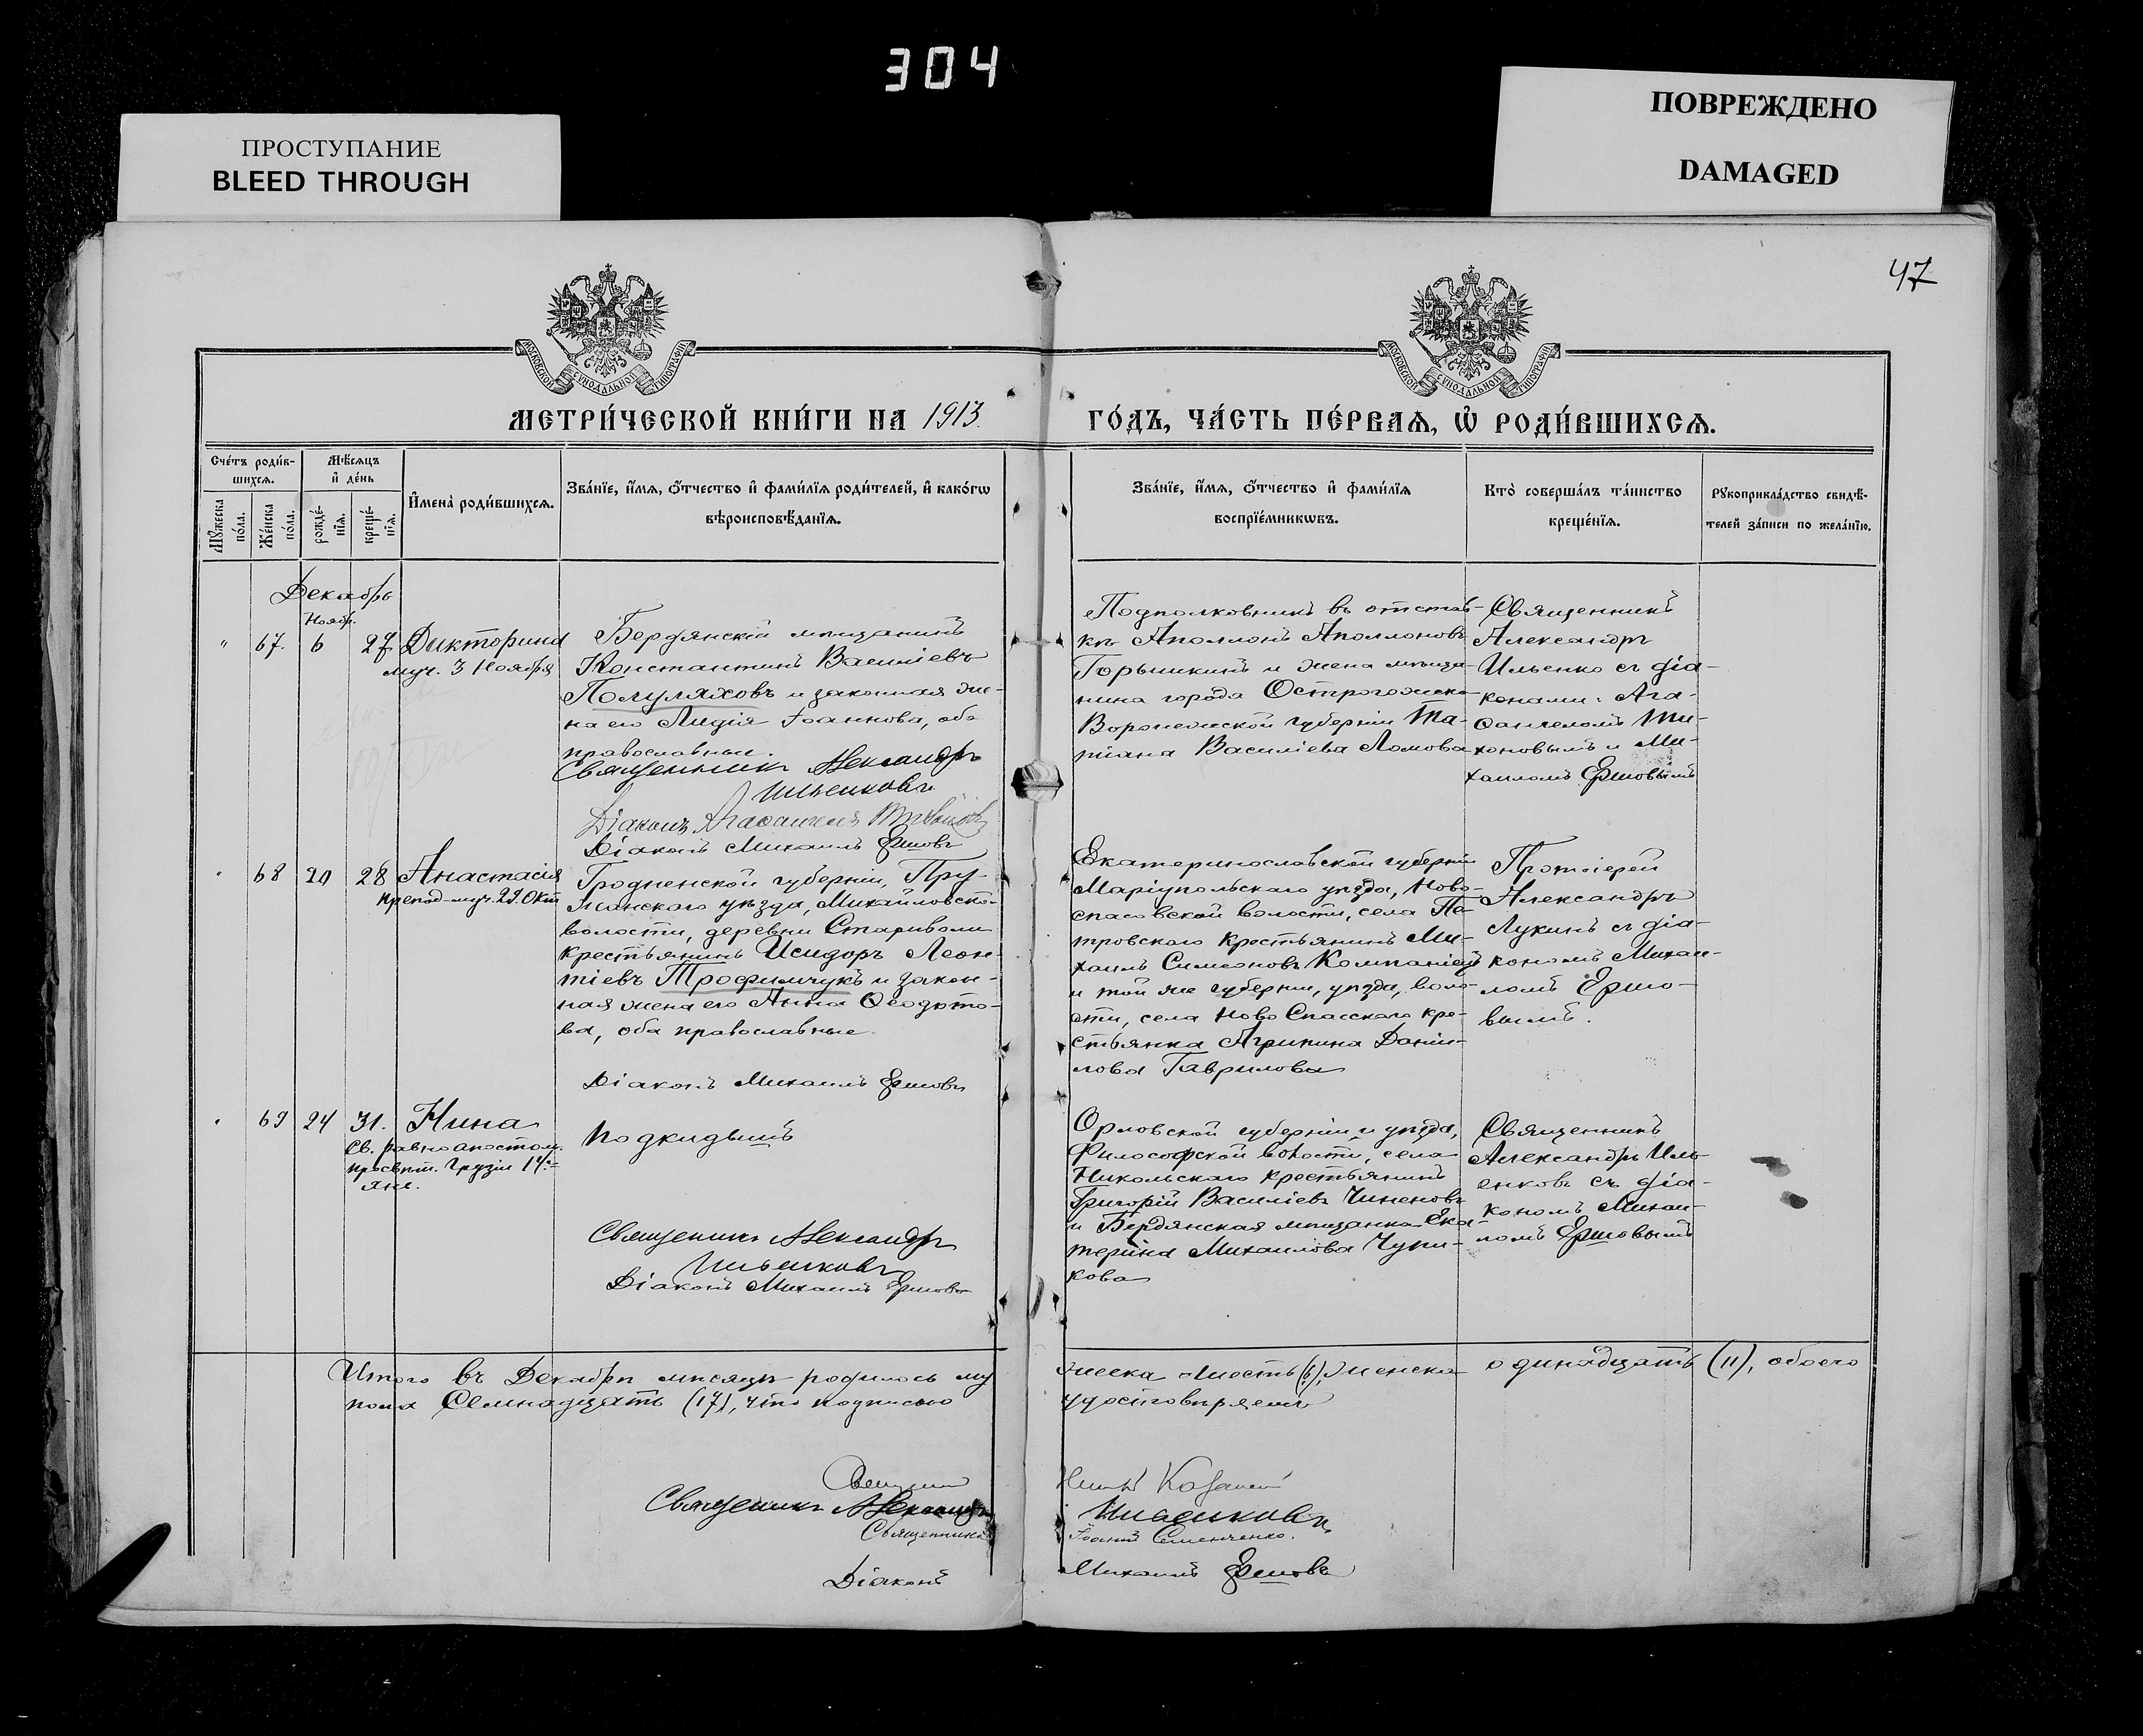 304
ПРОСТУПАНИЕ
BLEED THROUGH
ПОВРЕЖДЕНО
DAMAGED
47
МОСКОВСКОЙ СУНОДАЛЬНОЙ ТИПОГРАФІИ
МОСКОВСКОЙ СУНОДАЛЬНОЙ ТИПОГРАФІИ
МЕТРИ́ЧЕСКОЙ КНИ́ГИ НА 1913
ГО́ДЪ, ЧА́СТЬ ПЕ́РВАѦ, Ѡ҆ РОДИ́ВШИХСѦ.
Сче́тъ роди́в-
шихсѧ.
Мѣ́сѧцъ
и҆ де́нь
Мꙋ́жеска
по́ла.
Же́нска
по́ла.
рожде́-
нїѧ.
креще́-
нїѧ.
И҆мена̀ роди́вшихсѧ.
Зва́нїе, и҆́мѧ, ѻ҆́тчество и҆ фами́лїѧ роди́телей, и҆ како́гѡ
вѣроисповѣ́данїѧ.
Зва́нїе, и҆́мѧ, ѻ҆́тчество и҆ фами́лїѧ
воспрїе́мникѡвъ.
Кто̀ соверша́лъ та́инство
креще́нїѧ.
Рꙋкоприкла́дство свидѣ́-
телей за́писи по жела́нїю.
Декабрь
Ноябр.
" 67. 6 27 Викторина
муч. 3 Ноября
Бердянскій мѣщанинъ
Константинъ Василіевъ
Полуляховъ и законная же-
на его Лидія Іоаннова, оба
православные.
Священникъ Александръ
Ильенковъ
Діаконъ Агафангелъ
Діаконъ Михаилъ Ершовъ
Подполковникъ въ отстав-
кѣ Аполлонъ Аполлоновъ
и жена мѣща-
нина города Острогожска
Воронежской губерніи Та-
тіана Василіева Ломова
Священникъ
Александръ
Ильенко съ діа-
конами: Ага-
фангеломъ Ти-
хоновымъ и Ми-
хаиломъ Ершовымъ
" 68 20 28 Анастасія
препод-муч. 29 Окт
Гродненской губерніи, Пру-
жанскаго уѣзда, Михайловской
волости, деревни Стариволи
крестьянинъ Исидоръ Леон-
тіевъ Трофимчукъ и закон-
ная жена его Анна Ѳеодото-
ва, оба православные.
Діаконъ Михаилъ Ершовъ
Екатеринославской губерніи
Маріупольскаго уѣзда, Ново-
спасовской волости, села Пе-
тровскаго крестьянинъ Ми-
хаилъ Симеоновъ Компаніецъ
и той же губерніи, уѣзда, воло-
сти, села Ново Спасскаго кре-
стьянка Агрипина Дании-
лова Гаврилова
Протоіерей
Александръ
Лукинъ съ діа-
кономъ Михаи-
ломъ Ершо-
вымъ.
" 69 24 31. Нина
Св. равноапостол.
просвѣт. Грузіи 14
янв.
Подкидышъ
Священникъ Александръ
Ильенковъ
Діаконъ Михаилъ Ершовъ
Орловской губерніи и уѣзда,
Философской волости, села
Никольскаго крестьянинъ
Григорій Василіевъ Чиненовъ
и Бердянская мѣщанка Ека-
терина Михаилова Чури-
кова
Священникъ
Александръ Иль-
енковъ съ діа-
кономъ Михаи-
ломъ Ершовымъ
Итого въ Декабрѣ мѣсяцѣ родилось му
жеска шесть (6), женска одинадцать (11), обоего
пола семнадцать (17), что подписью
удостовѣряемъ
Священникъ Александръ Ильенковъ
Священникъ Іоаннъ Семенченко.
Діаконъ Михаилъ Ершовъ